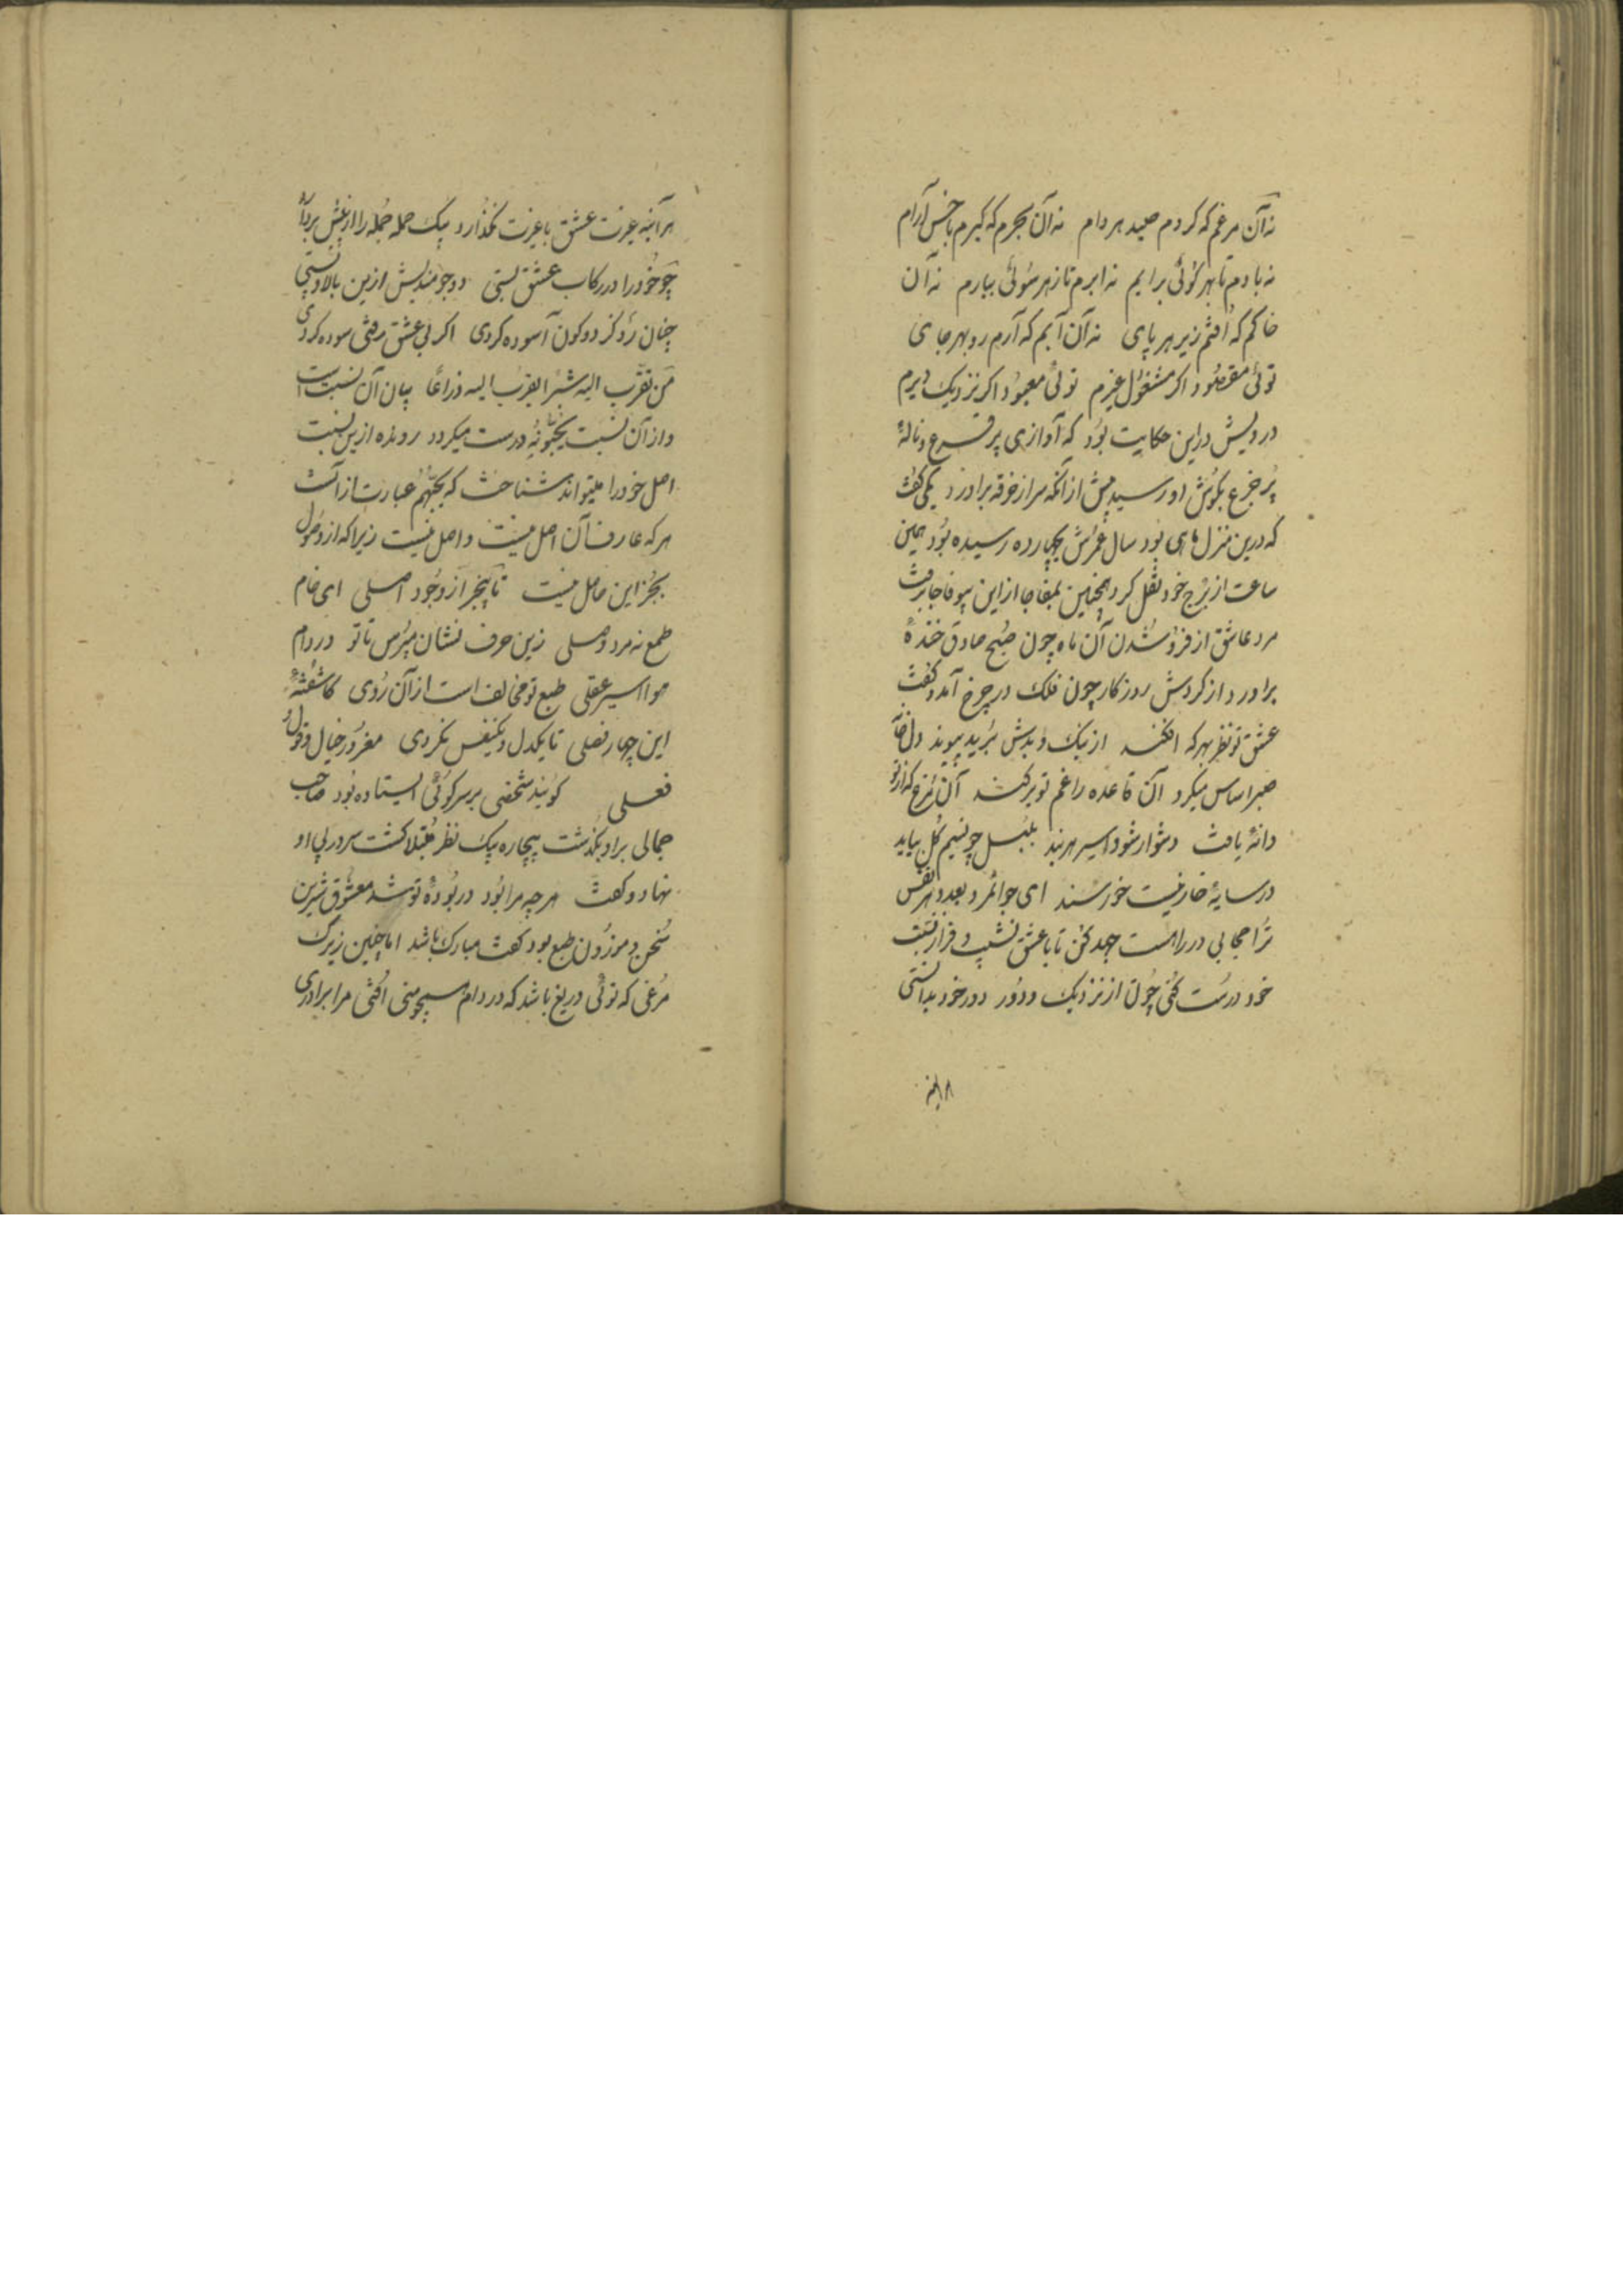 نه آن مرغم که کردم صید هر دام نه آن بحرم که کیرم با خس آرام
نه بادم تا بهر کوئی برایم نه ابرم تا ز هر سوئی ببارم نه آن
خاکم که افتم زیر هر پای نه آن آبم که آرم رو بهر جای
توئی مقصود اکر مشغول غیرم توئی معبود اکر نزدیک دیرم
درویش در این حکایت بود که آوازی پر قرع و نالهٔ
پر جزع بکوش او رسید پیش از آنکه سر از خرقه برآورد یکی کفت
که درین منزل ماهی بود سال عمرش بچهارده رسیده بود همین
ساعت از برج خود نقل کرد همچنین بمفاجا از این بیوفا جا برفت
مرد عاشق از فرو شدن آن ماه چون صبح صادق خندهٔ
برآورد از کردش روزکار چون فلک در چرخ آمد و کفت
عشق تو نظر بهر که افکند از نیک و بدش برید پیوند دل خانهٔ
صبر اساس میکرد آن قاعده را غم تو برکند آن مرغ که از تو
دانهٔ یافت دشوار شود اسیر هر بند بلبل چو نسیم کل بیابد
در سایهٔ خار نیست خورسند ای جوانمرد بعدد هر نفس
ترا حجابی در راهست جهد کن تا با عشق نشیب و فراز نسبت
خود درست کنی چون از نزدیک و دور دور خود بدانستی
هر آینه
هر آینه عزت عشق با غیرت نکذارد بیک حمله جمله را از پیش بردارد
چو خود را در رکاب عشق بستی دو جو مندیش ازین بالا و پستی
چنان رو کز دو کون آسوده کردی اکر بی عشق رفتی سوده کردی
من تقرب الیه شبرا یقرب الیه ذراعا بیان آن نسبت است
و از آن نسبت یحبونه درست میکردد رونده ازین نسبت
اصل خود را میتواند شناخت که یحبهم عبارت از آنست
هر که عارف آن اصل نیست واصل نیست زیرا که از وصول
بجز این حاصل نیست تا بیخبر از وجود اصلی ای خام
طمع نه مرد وصلی زین حرف نشان مپرس تا تو در دام
هوا اسیر عقلی طبع تو مخالف است از آن روی کاشفتهٔ
این چهار فصلی تا یکدل و یکنفس نکردی مغرور خیال و قول و
فعلی کویند شخصی بر سر کوئی ایستاده بود صاحب
جمالی بر او بکذشت بیچاره بیک نظر مبتلا کشت سر در پی او
نهاد و کفت هر چه مرا بود در بودهٔ تو شد معشوق شیرین
سخن و موزون طبع بود کفت مبارک باشد اما چنین زیرک
مرغی که توئی دریغ باشد که در دام همچو منی افتی مرا برادری